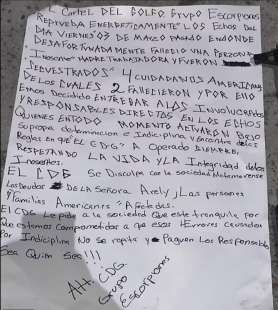 Cartel DEL GOLFO Grupo Escorpiones
Reprueba Energeticamente los Echos Del
DIA Viernes 03 DE Marzo pasado En donde
DESAFORTunadamente Fallecio una persona
Inosente MADRE TRABAJADORA y FUERON
SECUESTRADOS 4 CUIDADANOS AMERICANOS
DE LOS CUALES 2 FALLECIERON y POR ELLO
Emos Decidido Entregar A LOS INVOLUCRADOS
y RESPONSABLES DIRECTOS EN LOS ECHOS
QUIENES EN TODO MOMENTO ACTUARON BAJO
Su propia determinacion e Indiciplina y encontra de las
Reglas En que EL CDG A Operado SIEMPRE,
RESPETANDO LA VIDA y LA Integridad delos
Inosentes.
EL CDG Se Disculpa Con la sociedad Matamorense
Los Deudos DE LA Señora Arely, Las personas
y Familias Americanas Afectadas.
El CDG Le pide a la sociedad que este tranquila por
que estamos Comprometidos a que esos Errores Causados
Por Indiciplina No Se repita y Paguen Los Responsables
Sea Quien Sea!!!
Att. CDG.
Grupo
Escorpiones